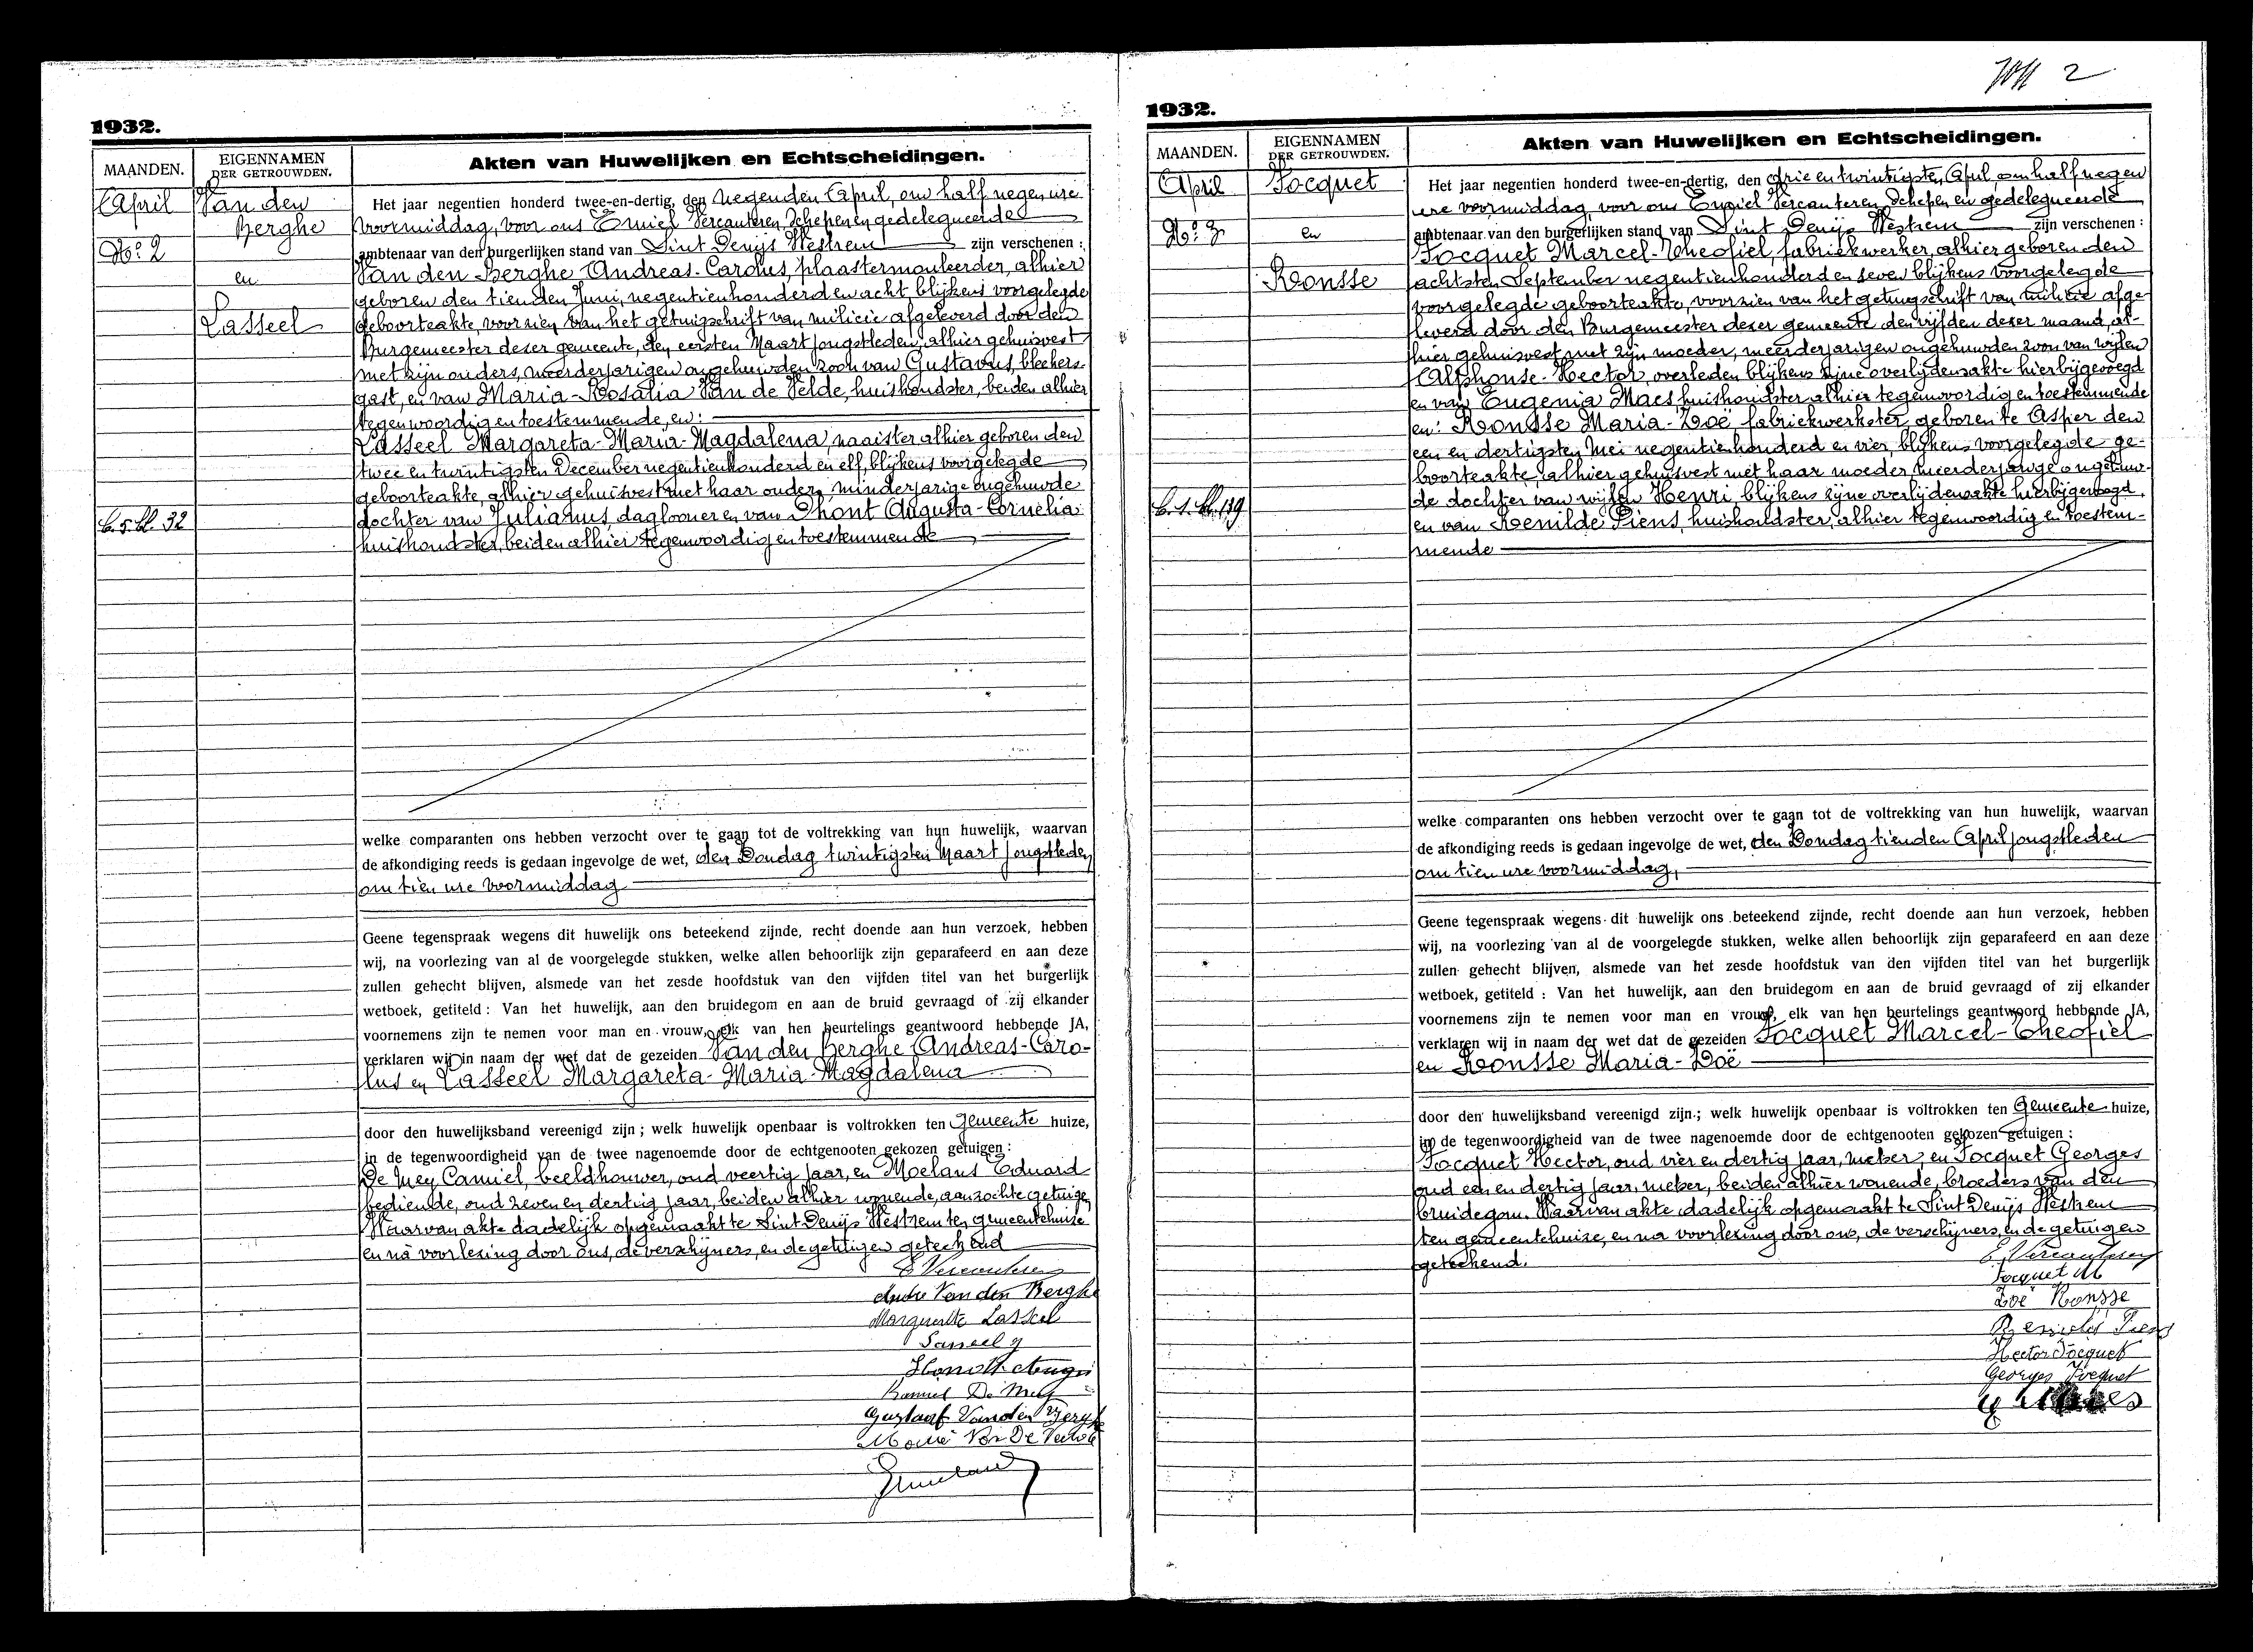 1932.
MAANDEN.
EIGENNAMEN
DER GETROUWDEN.
Akten van Huwelijken en Echtscheidingen.
April
No: 2
Van den
Berghe
en
Lasseel
Het jaar negentien honderd twee-en-dertig, den negenden April, om half negen ure
voormiddag, voor ons Emiel Vercauteren, Schepen en gedelegueerde
ambtenaar van den burgerlijken stand van Sint Denijs Westrem zijn verschenen :
Van den Berghe Andreas-Carolus, plaastermouleerder, alhier
geboren den tienden Juni, negentienhonderd en acht, blijkens voorgelegde
geboorteakte, voorzien van het getuigschrift van milicie afgeleverd door den
Burgemeester dezer gemeente, den eersten Maart jongstleden, alhier gehuisvest
met zijn ouders, meerderjarigen ongehuwden zoon van Gustavus, bleekers-
gast, en van Maria-Rosalia Van de Velde, huishoudster, beiden alhier
tegenwoordig en toestemmende, en:
Lasseel Margareta-Maria-Magdalena, naaister alhier geboren den
twee en twintigsten December negentienhonderd en elf, blijkens voorgelegde
geboorteakte, alhier gehuisvest met haar ouders, minderjarige ongehuwde
dochter van Julianus, daglooner en van Dhont Augusta-Cornelia
huishoudster, beiden alhier tegenwoordig en toestemmende
welke comparanten ons hebben verzocht over te gaan tot de voltrekking van hun huwelijk, waarvan
de afkondiging reeds is gedaan ingevolge de wet, den Zondag twintigsten Maart jongstleden
om tien ure voormiddag
Geene tegenspraak wegens dit huwelijk ons beteekend zijnde, recht doende aan hun verzoek, hebben
wij, na voorlezing van al de voorgelegde stukken, welke allen behoorlijk zijn geparafeerd en aan deze
zullen gehecht blijven, alsmede van het zesde hoofdstuk van den vijfden titel van het burgerlijk
wetboek, getiteld : Van het huwelijk, aan den bruidegom en aan de bruid gevraagd of zij elkander
voornemens zijn te nemen voor man en vrouw, elk van hen beurtelings geantwoord hebbende JA,
verklaren wij in naam der wet dat de gezeiden Van den Berghe Andreas-Caro-
lus en Lasseel Margareta-Maria-Magdalena
door den huwelijksband vereenigd zijn ; welk huwelijk openbaar is voltrokken ten Gemeente huize,
in de tegenwoordigheid van de twee nagenoemde door de echtgenooten gekozen getuigen :
De Mey Camiel, beeldhouwer, oud veertig jaar, en Moelans Eduard
bediende, oud zeven en dertig jaar, beiden alhier wonende, aanzochte getuigen
Waarvan akte dadelijk opgemaakt te Sint Denijs Westrem ten gemeentehuize
en na voorlezing door ons, de verschijners, en de getuigen geteekend
E Vercauteren
Andre Van den Berghe
Marguerite Lasseel
Lasseel J
De Mey
Gustaaf Van den Berghe
Maria Van De Velde
1932.
2
MAANDEN.
EIGENNAMEN
DER GETROUWDEN.
Akten van Huwelijken en Echtscheidingen.
April
No: 3
Focquet
en
Ronsse
Het jaar negentien honderd twee-en-dertig, den drie en twintigsten April, om half negen
ure voormiddag, voor ons Emiel Vercauteren Schepen en gedelegueerde
ambtenaar van den burgerlijken stand van Sint Denijs Westrem zijn verschenen :
Focquet Marcel-Theofiel, fabriekwerker, alhier geboren den
achtsten September negentienhonderd en zeven blijkens voorgelegde
voorgelegde geboorteakte, voorzien van het getuigschrift van milicie afge-
leverd door den Burgemeester dezer gemeente den vijfden dezer maand, al-
hier gehuisvest met zijn moeder, meerderjarigen ongehuwden zoon van wijlen
Alphonse-Hector, overleden blijkens zijne overlijdensakte hierbijgevoegd
en van Eugenia Maes huishoudster alhier tegenwoordig en toestemmende
en: Ronsse Maria-Zoë fabriekwerkster, geboren te Asper den
een en dertigsten Mei negentienhonderd en vier, blijkens voorgelegde ge-
boorteakte, alhier gehuisvest met haar moeder, meerderjarige ongehuw-
de dochter van wijlen Henri blijkens zijne overlijdensakte hierbijgevoegd,
en van Renilde Piens, huishoudster, alhier tegenwoordig en toestem-
mende
welke comparanten ons hebben verzocht over te gaan tot de voltrekking van hun huwelijk, waarvan
de afkondiging reeds is gedaan ingevolge de wet, den Zondag tienden April jongstleden
om tien ure voormiddag,
Geene tegenspraak wegens dit huwelijk ons beteekend zijnde, recht doende aan hun verzoek, hebben
wij, na voorlezing van al de voorgelegde stukken, welke allen behoorlijk zijn geparafeerd en aan deze
zullen gehecht blijven, alsmede van het zesde hoofdstuk van den vijfden titel van het burgerlijk
wetboek, getiteld : Van het huwelijk, aan den bruidegom en aan de bruid gevraagd of zij elkander
voornemens zijn te nemen voor man en vrouw, elk van hen beurtelings geantwoord hebbende JA,
verklaren wij in naam der wet dat de gezeiden Focquet Marcel-Theofiel
en Ronsse Maria-Zoë
door den huwelijksband vereenigd zijn ; welk huwelijk openbaar is voltrokken ten Gemeente huize,
in de tegenwoordigheid van de twee nagenoemde door de echtgenooten gekozen getuigen :
Focquet Hector, oud vier en dertig jaar, metser, en Focquet Georges
oud een en dertig jaar, metser, beiden alhier wonende, broeders van den
bruidegom. Waarvan akte dadelijk opgemaakt te Sint Denijs Westrem
ten gemeentehuize, en na voorlezing door ons, de verschijners, en de getuigen
geteekend.
E Vercauteren
Focquet M
Zoë Ronsse
Renilde Piens
Hector Focquet
Georges Focquet